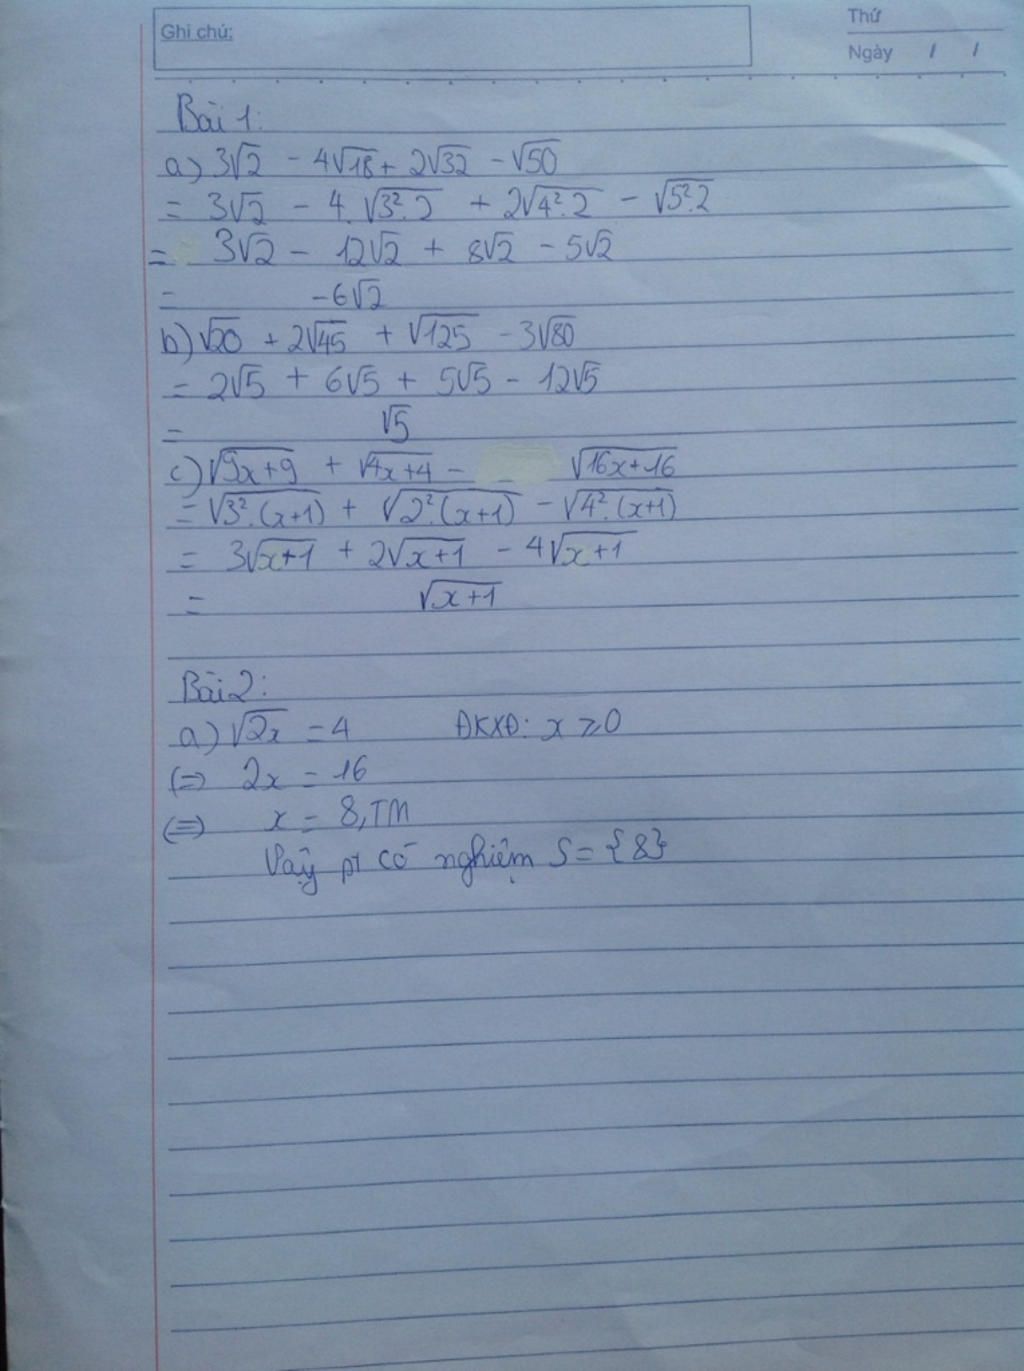 Ghi chú:
Thứ
Ngày / /
Bài 1:
a) 3√2 - 4√18 + 2√32 - √50
= 3√2 - 4.√3².2 + 2√4².2 - √5².2
= 3√2 - 12√2 + 8√2 - 5√2
= -6√2
b) √20 + 2√45 + √125 - 3√80
= 2√5 + 6√5 + 5√5 - 12√5
= √5
c) √9x+9 + √4x+4 - √16x+16
= √3².(x+1) + √2².(x+1) - √4².(x+1)
= 3√x+1 + 2√x+1 - 4√x+1
= √x+1
Bài 2:
a) √2x = 4 ĐKXĐ: x ≥ 0
(=) 2x = 16
(=) x = 8, TM
Vậy pt có nghiệm S = {8}